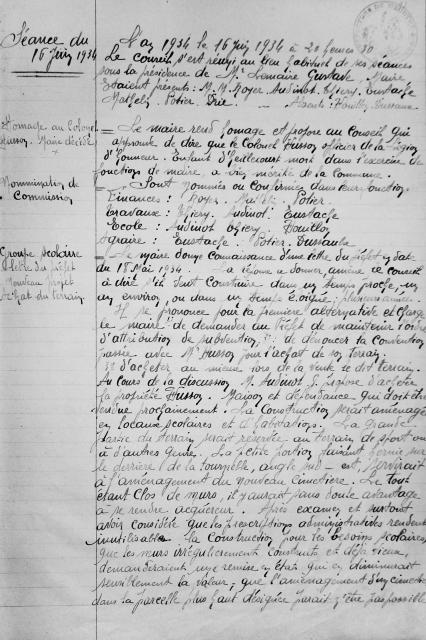 Séance du
16 Juin 1934
L'an 1934 le 16 Juin 1934 à 20 heures 30
Le conseil s'est réuni au lieu habituel de ses séances
sous la présidence de Mr Lemaire Gustave, Maire
Etaient présents: M.M. Royer. Audinot. Thiery. Eustache
Mathely. Potier. Absents: Houillon
Homage au Colonel
Husson. Maire décédé
Le maire rend homage et propose au Conseil qui
approuve de dire que le Colonel Husson officier de la Légion
d'honneur. Enfant mort dans l'exercice de
fonction de maire, a bien mérité de la commune.
Nommination de
Commission
Sont nommés ou confirmés dans leur fonction
Finances: Royer. Potier.
Travaux: Thiery. Audinot. Eustache
Ecole: Audinot Thiery. Houillon
Agraire: Eustache. Potier.
Groupe scolaire
lettre du préfet
Nouveau projet
Achat du terrain
Le maire donne connaissance d'une lettre du Préfet en date
du 18 Mai 1934. le conseil
à dire s'il veut construire dans un temps proche, un
an environ, ou dans un temps éloigné, plusieurs années.
Il se prononce pour la première alternative et charge
le maire de demander au Préfet de maintenir
d'attribution de subvention, 2° de dénoncer la convention
passée avec Mr Husson pour l'achat de son terrain.
3° d'acheter au mieux lors de la vente le dit terrain.
Au cours de la discussion M. Audinot propose d'acheter
la propriété Husson. Maison et dépendance qui doit être
vendue prochainement. La Construction serait aménagée
en locaux scolaires et d'habitations. La grande
partie du terrain serait réservée au terrain de sport ou
à d'autres genre. La petite portion faisant
le derrière de la angle sud-est, servirait
à l'aménagement du nouveau cimetière. Le tout
étant clos de murs, il y aurait sans doute avantage
à se rendre acquéreur. Après examen et surtout
avoir considéré que les prescriptions administratives rendent
inutilisable la construction pour les besoins scolaires,
que les murs irrégulièrement construits et déjà vieux,
demanderaient une remise en état qui en diminuerait
sensiblement la valeur, que l'aménagement d'un cimetière
dans la parcelle plus haut désignée parait n'être pas possible